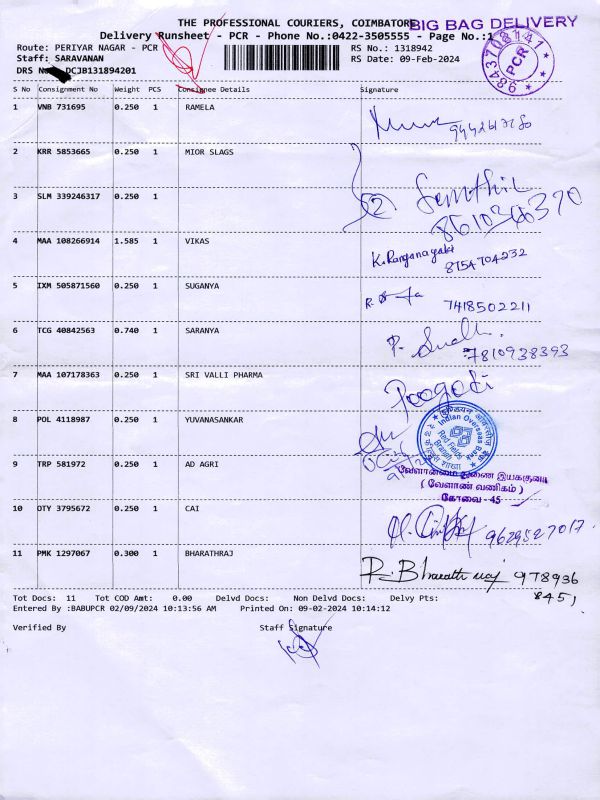 THE PROFESSIONAL COURIERS, COIMBATORE
BIG BAG DELIVERY
Delivery Runsheet - PCR - Phone No.:0422-3505555 - Page No.:1
Route: PERIYAR NAGAR - PCR
RS No.: 1318942
Staff: SARAVANAN
RS Date: 09-Feb-2024
DRS No.: DCJB131894201
PCR
S No Consignment No Weight PCS Consignee Details Signature
1 VNB 731695 0.250 1 RAMELA
2 KRR 5853665 0.250 1 MIOR SLAGS
3 SLM 339246317 0.250 1
Senthil
8610346370
4 MAA 108266914 1.585 1 VIKAS
K.Ranganayaki
8754704232
5 IXM 505871560 0.250 1 SUGANYA
7418502211
6 TCG 40842563 0.740 1 SARANYA
7810938393
7 MAA 107178363 0.250 1 SRI VALLI PHARMA
Poogodi
8 POL 4118987 0.250 1 YUVANASANKAR
Indian Overseas Bank
Red Fields
Branch
9 TRP 581972 0.250 1 AD AGRI
வேளாண்மை துணை இயக்குனர்
( வேளாண் வணிகம் )
கோவை - 45
10 OTY 3795672 0.250 1 CAI
9629527017
11 PMK 1297067 0.300 1 BHARATHRAJ
P. Bharathraj 978936
8451
Tot Docs: 11 Tot COD Amt: 0.00 Delvd Docs: Non Delvd Docs: Delvy Pts:
Entered By :BABUPCR 02/09/2024 10:13:56 AM Printed On: 09-02-2024 10:14:12
Verified By Staff Signature